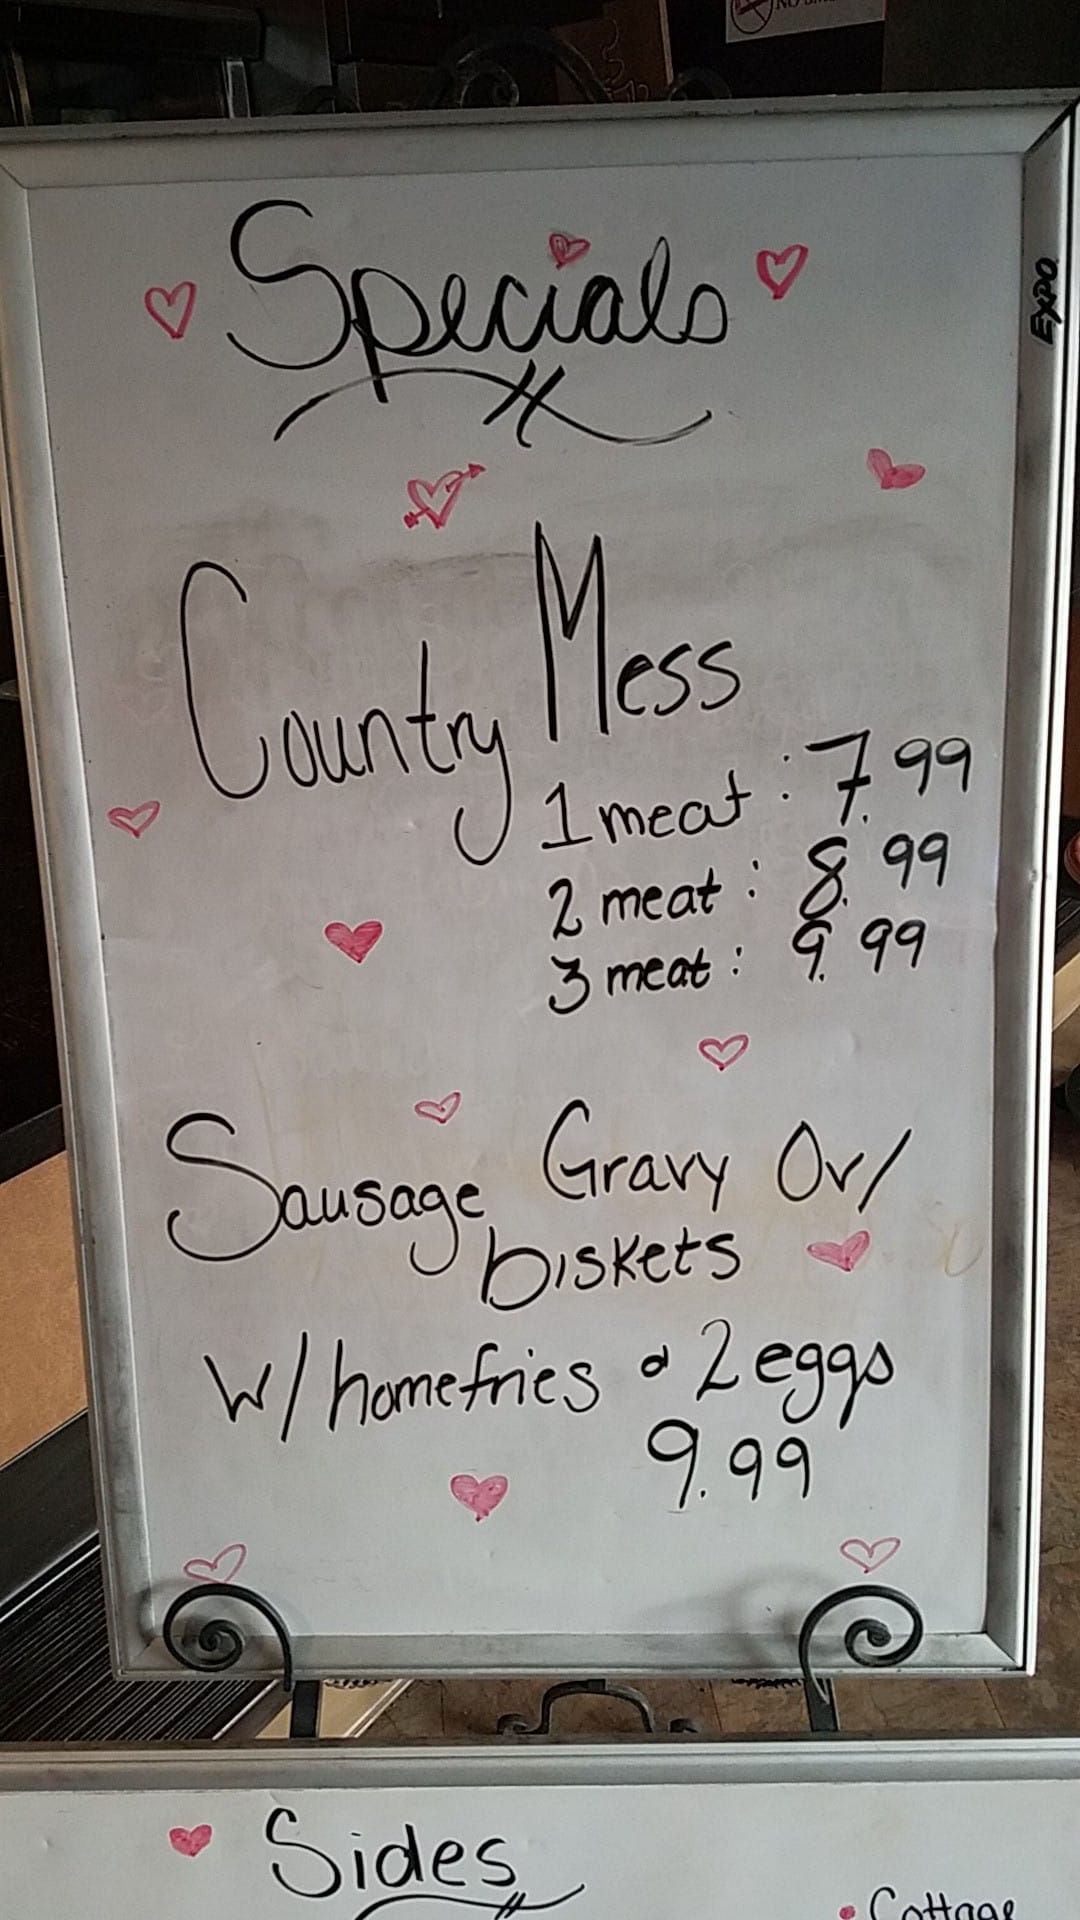 NO SM
EXPO
Specials
Country Mess
1 meat : 7.99
2 meat : 8.99
3 meat : 9.99
Sausage Gravy Ov/
biskets
w/ homefries & 2 eggs
9.99
Sides
• Cottage